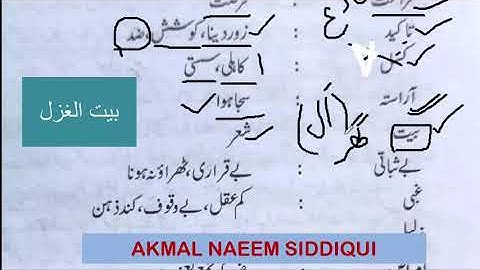 تاکید : زور دینا، کوشش، ضد
کسل : کاہلی، سستی
آراستہ : سجا ہوا
بیت : شعر
گھر
بیت الغزل
بے ثباتی : بے قراری، ٹھراؤ نہ ہونا
غبی : کم عقل، بے وقوف، کند ذہن
AKMAL NAEEM SIDDIQUI